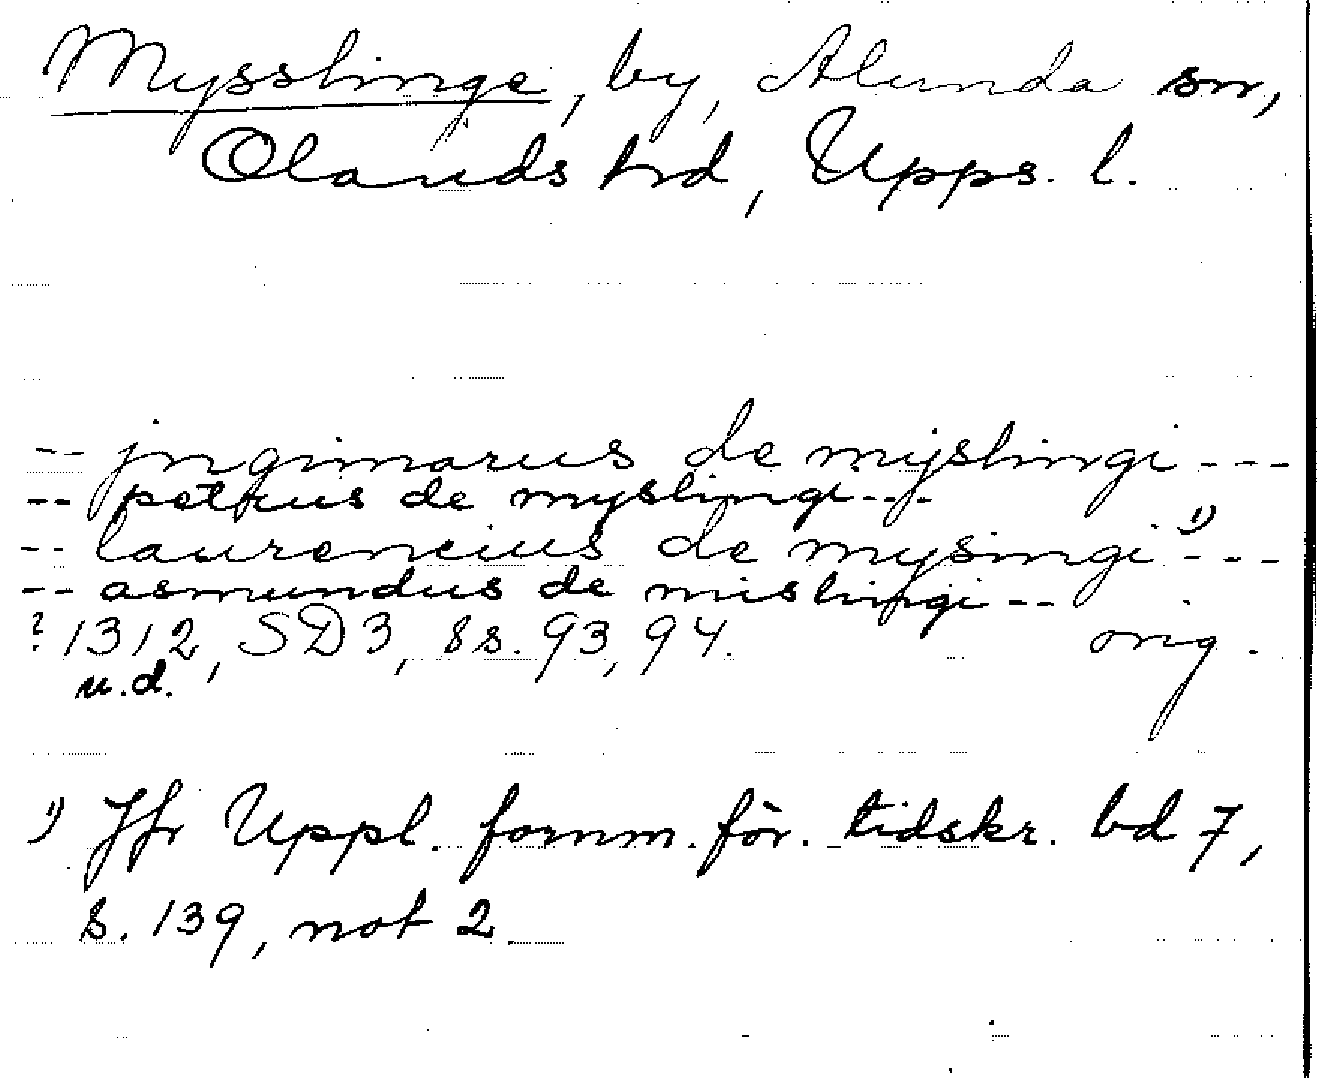 Mysslinge, by, Alunda sn,
Olands hd, Upps. l.
-- jngimarus de myslingi ---
-- petrus de myslingi ---
-- laurencius de mysingi 1) ---
-- asmundus de mislingi --
? 1312, SD3, ss. 93, 94. orig.
u.d.
1) Jfr Uppl. fornm. för. tidskr. bd 7,
s. 139, not 2